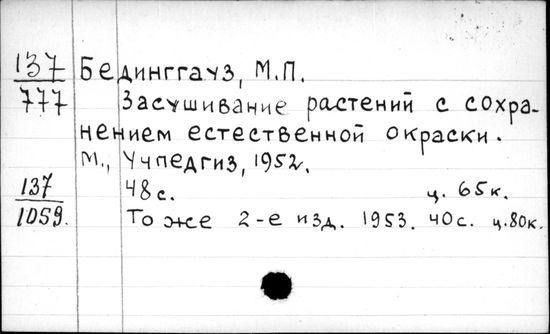 137 Бединггауз, М.П.
777 Засушивание растений с сохра-
нением естественной окраски.
М., Учпедгиз, 1952.
137 48 с. ц. 65к.
1059. То же 2-е изд. 1953. 40с. ц.80к.